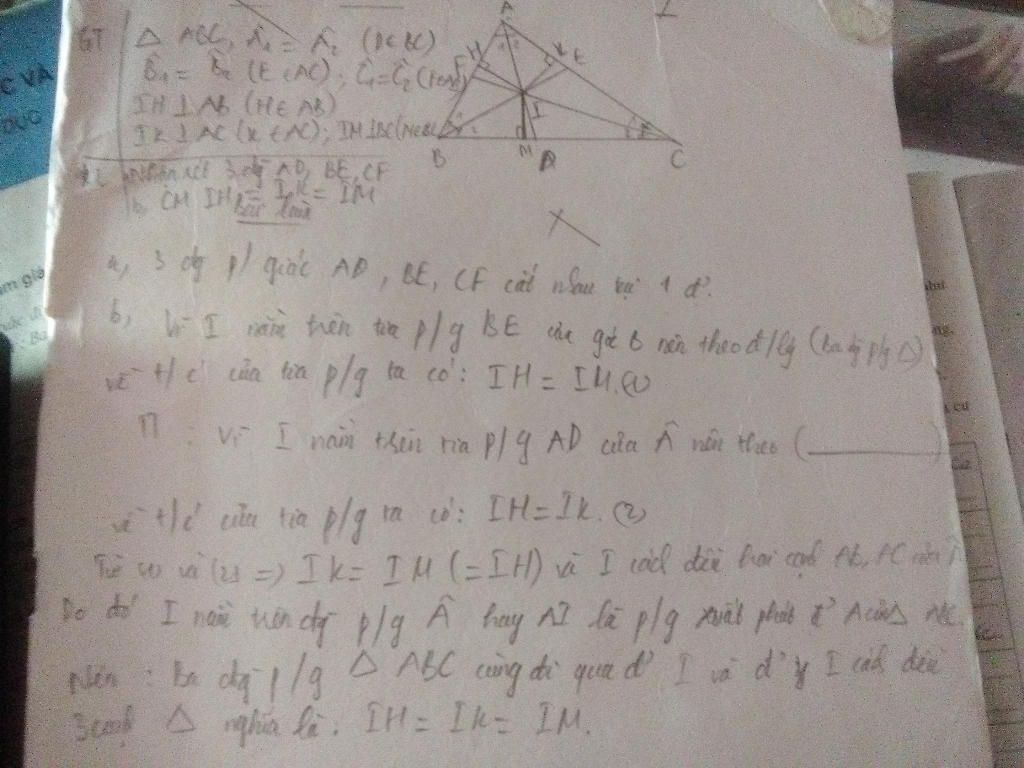 GT
Δ ABC, Â1 = Â2 (D∈BC)
B̂1 = B̂2 (E∈AC); Ĉ1 = Ĉ2
IH⊥AB (H∈AB)
IK⊥AC (K∈AC); IM⊥BC
KL a, Nhận xét 3 đg AD, BE, CF
b, CM IH = IK = IM
Bài làm
A
H
F
K
E
I
B
M
D
C
a, 3 đg p/giác AD, BE, CF cắt nhau tại 1 đ'.
b, Vì I nằm trên tia p/g BE của góc B nên theo đ/lý (Ba đg p/g Δ)
về t/c của tia p/g ta có: IH = IM. (1)
: Vì I nằm trên tia p/g AD của Â nên theo (
về t/c của tia p/g ta có: IH = IK. (2)
Từ (1) và (2) => IK = IM (=IH) và I cách đều hai cạnh AB, AC của
Do đó I nằm trên đg p/g Â hay AI là p/g xuất phát từ A của Δ ABC.
Nên : Ba đg p/g Δ ABC cùng đi qua đ' I và đ' I cách đều
3 cạnh Δ nghĩa là: IH = IK = IM.
ĐỤC
C VÀ